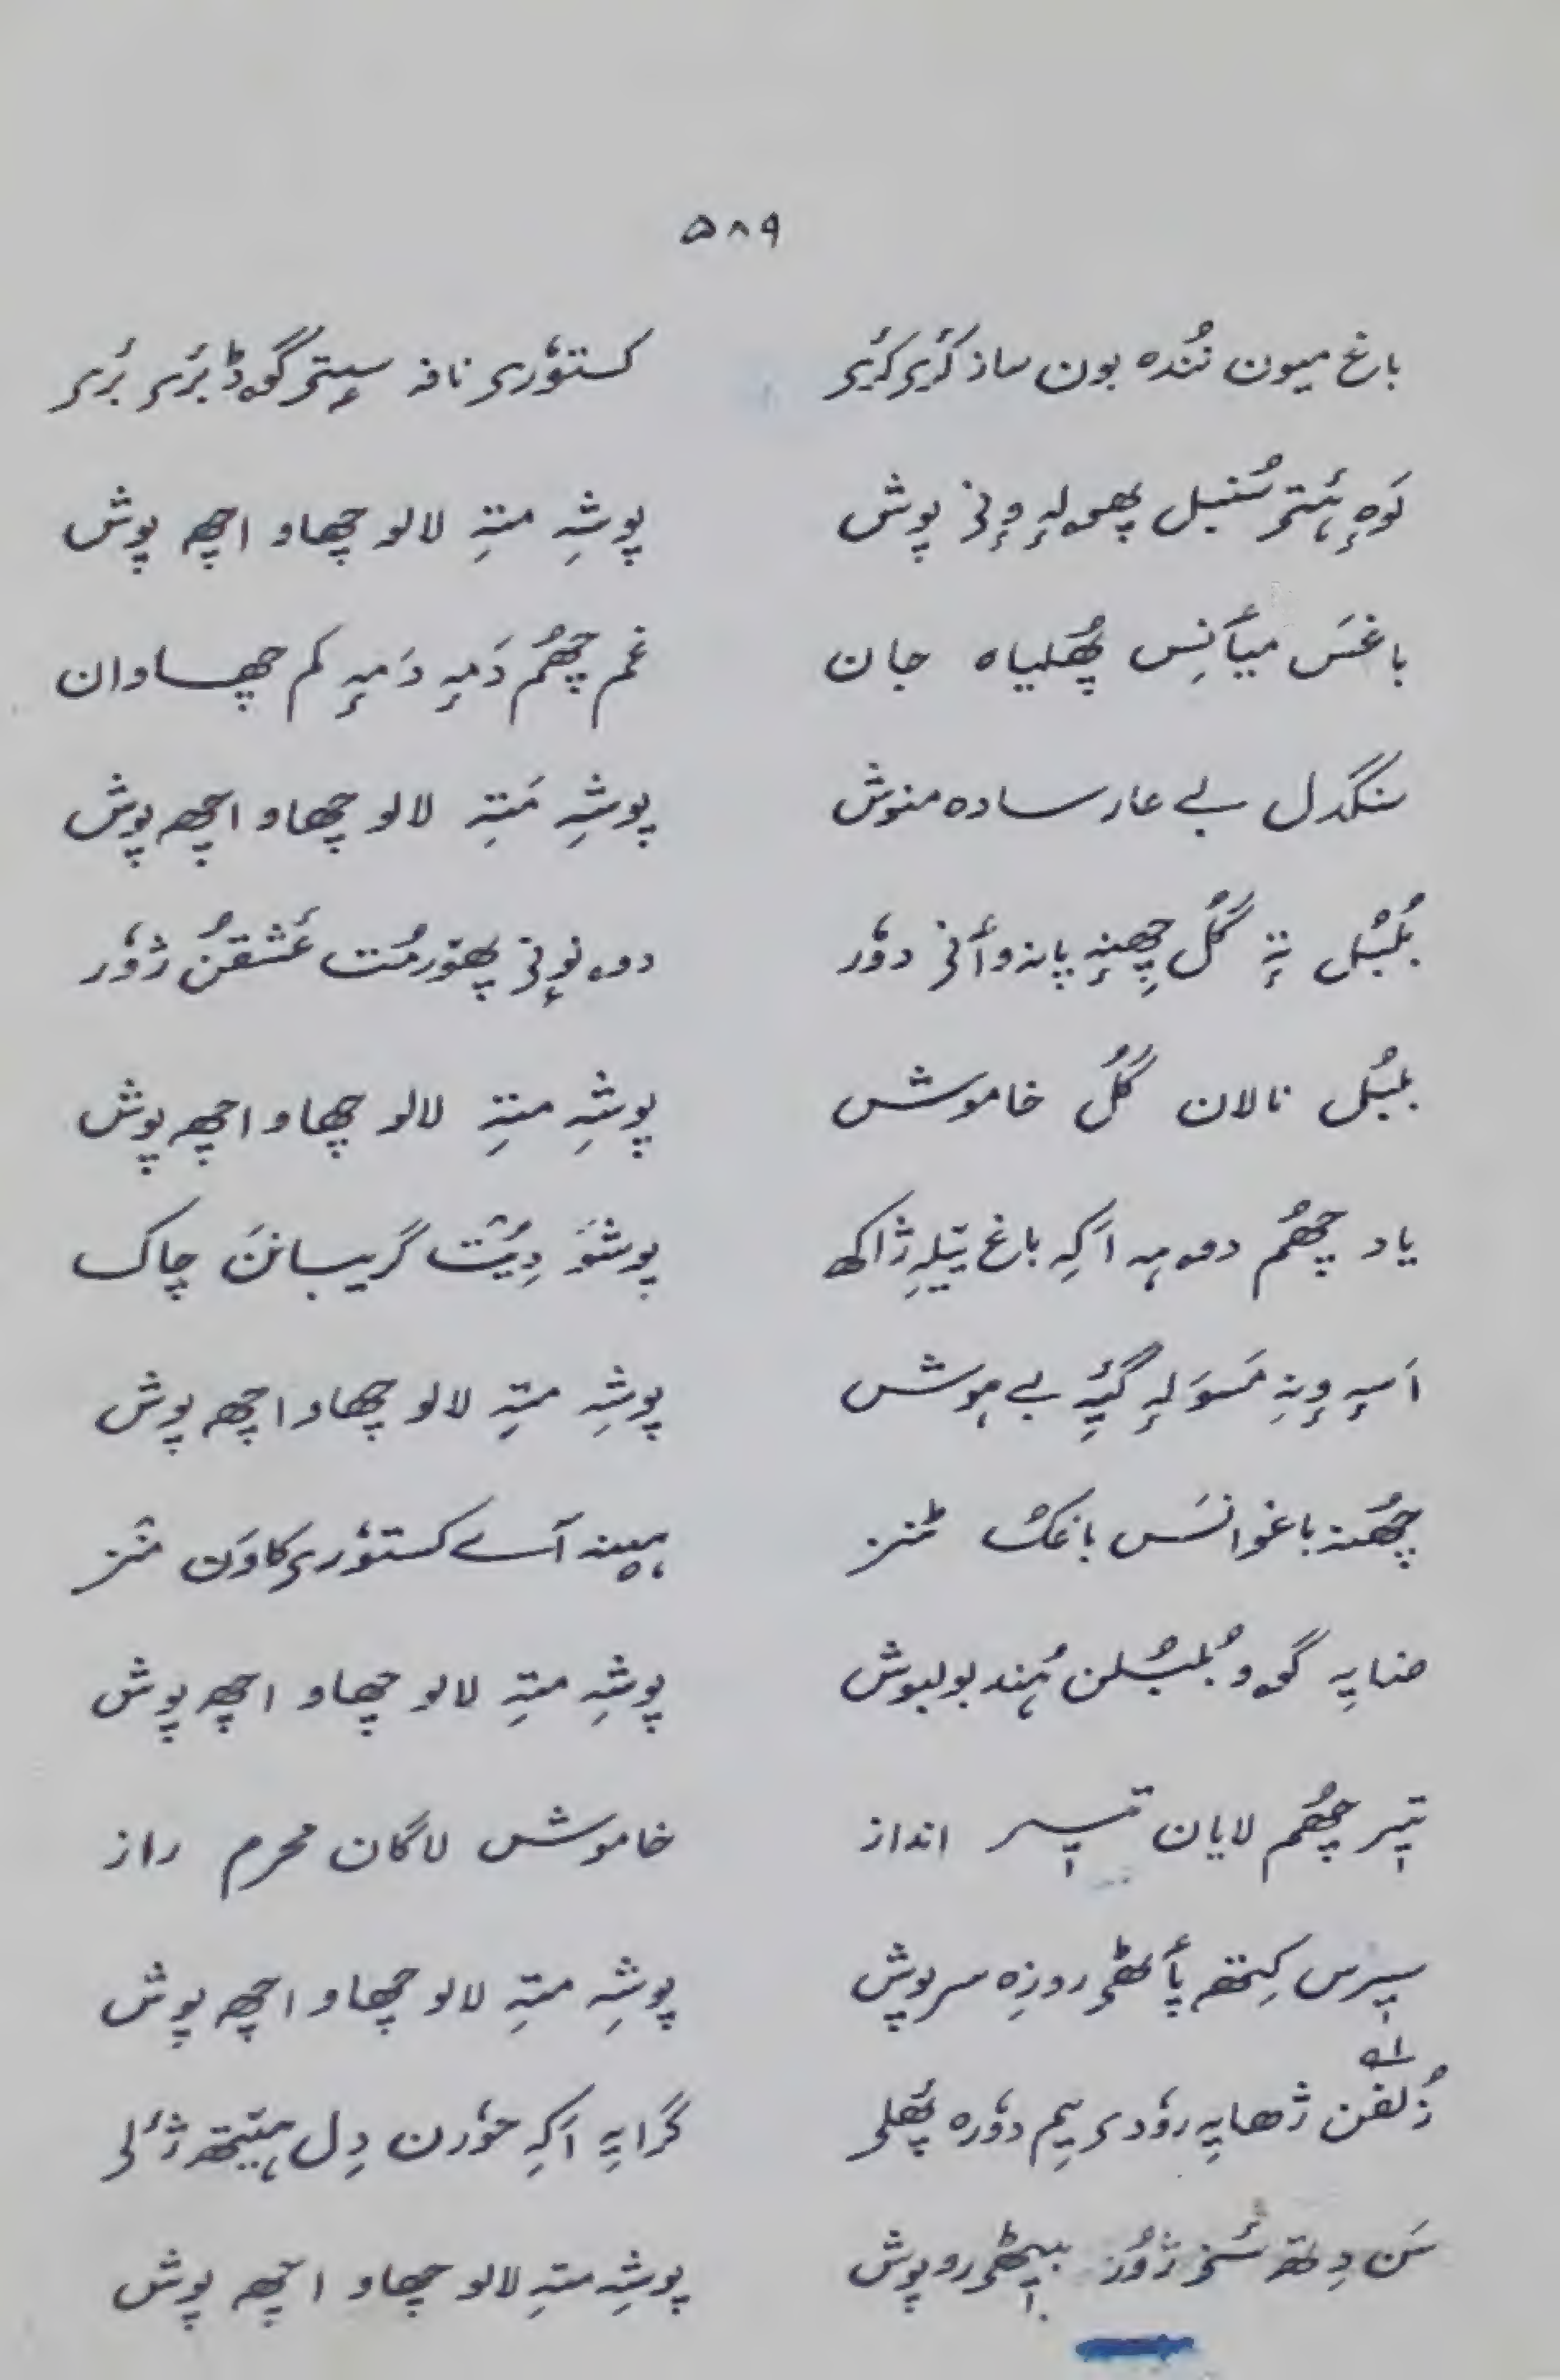 ۵۸۹
باغ میون نُنده بون ساز کٔریر کٔریر کستوٗری نافہ سٟتۍ گوہ ڈ بٔرۍ بٔرۍ
سُنبل پوش پوشہِ متہِ لالو چھاو اچھ پوش
باغس میأنِس پھُلیاہ جان غم چھُم دَمہٕ دَمہٕ کم چھاوان
سنگدل بے عار سادہ منوش پوشہِ مَتہِ لالو چھاو اچھ پوش
بُلبُل تہٕ گُل چھِنہٕ پانہ وأنۍ دوٗر پھۆرمُت عَشقُن ژوٗر
بلبُل نالان گُل خاموش پوشہِ متہِ لالو چھاو اچھ پوش
یاد چھُم دوہہ اَکہِ باغ ژاکھ پوشَو دِیُت گریبانَن چاک
اَسہٕ وٕنہِ مَسوَلہٕ گیہِ بے ہوش پوشہِ متہِ لالو چھاو اچھ پوش
چھُنہ باغوانَس باغُک مٔنز ہینہ آے کستوٗرۍ کاوَن منٛز
ضایہِ گوو بُلبُلن ہُند بولبوش پوشہِ متہِ لالو چھاو اچھ پوش
تیر چھُم لایان تیر انداز خاموش لاگان محرم راز
سیرس کِتھ پأٹھۍ روزِہ سرپوش پوشہِ متہِ لالو چھاو اچھ پوش
زُلفن ژھایہِ روٗدۍ یِم دوٗرہ پھُلۍ گرایہِ اَکہِ حوٗرن دِل ہیٚتھ ژٔلۍ
سَن دِتھ ژوٗر بیٹھۍ روپوش پوشہِ متہِ لالو چھاو اچھ پوش